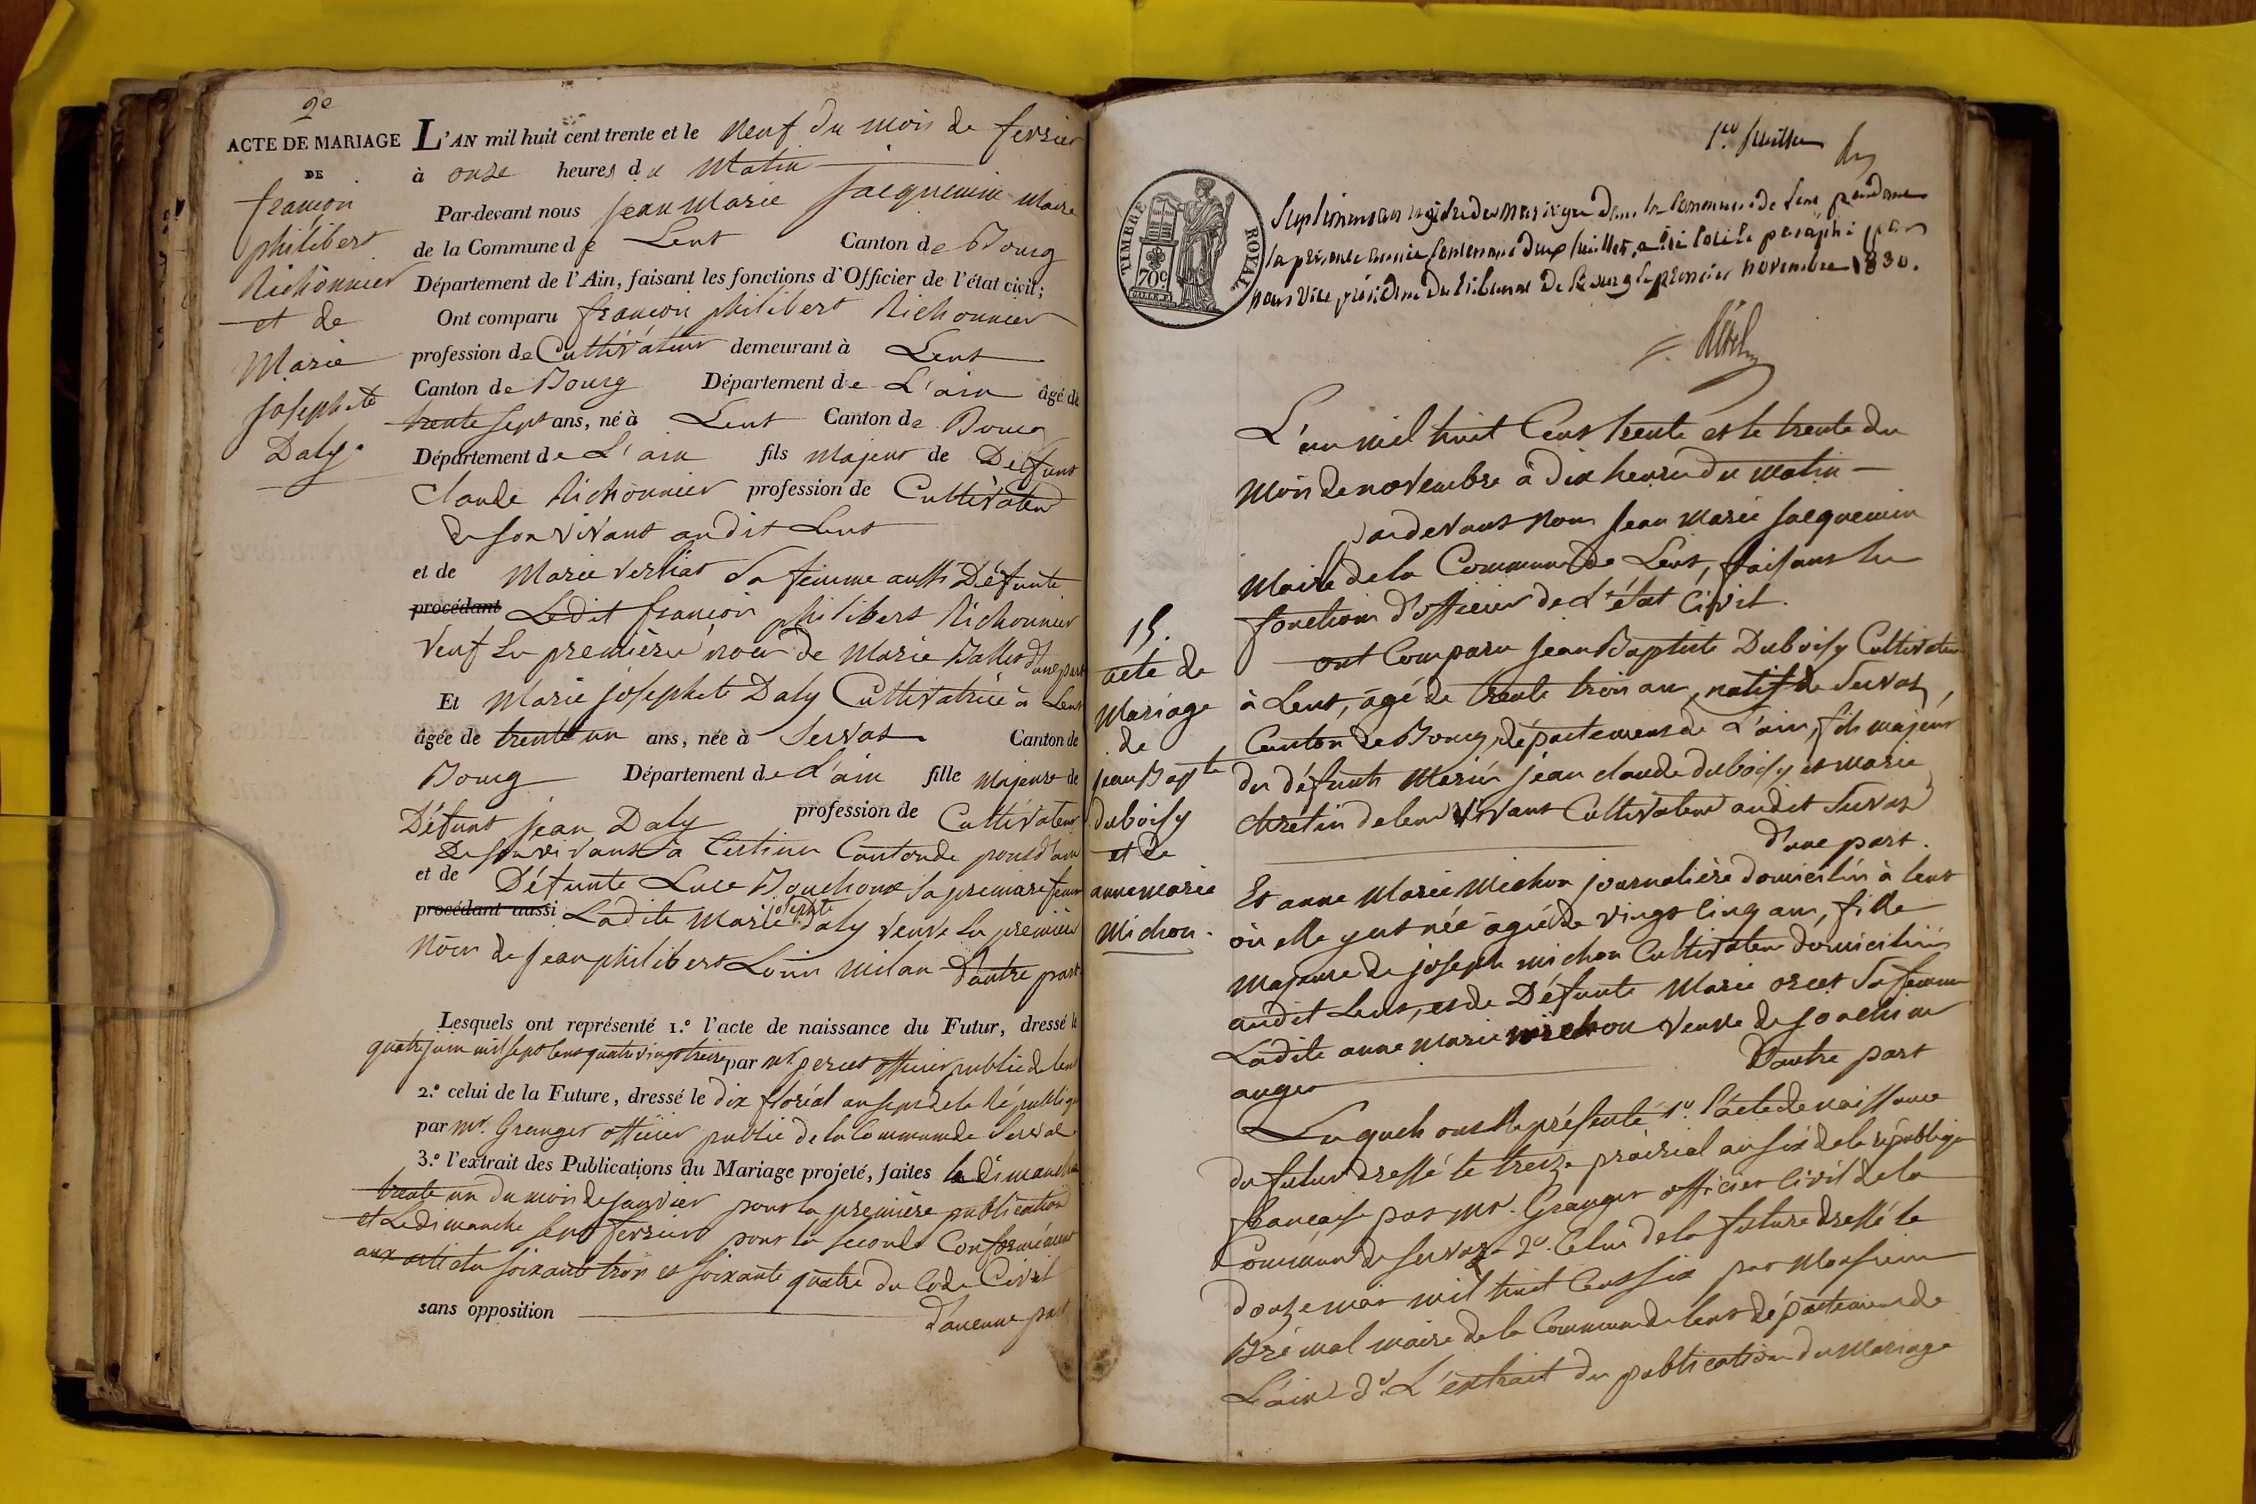 2e
ACTE DE MARIAGE
DE
françois
philibert
Richonnier
et de
Marie
josephete
Daly.
L'AN mil huit cent trente et le neuf du mois de fevrier
à onze heures du Matin
Par-devant nous jean Marie jacquemin Maire
de la Commune de Lent Canton de Bourg
Département de l'Ain, faisant les fonctions d'Officier de l'état civil;
Ont comparu françois philibert Richonnier
profession de Cultivateur demeurant à Lent
Canton de Bourg Département de L'ain âgé de
trente sept ans, né à Lent Canton de Bourg
Département de L'ain fils Majeur de Defunt
Claude Richonnier profession de Cultivateur
de son vivant audit Lent
et de Marie Verliat Sa femme aussi Défunte
procédant Ledit françois philibert Richonnier
Veuf En premières noces de Marie Ballet d'une part
Et Marie josephete Daly Cultivatrice à Lent
âgée de trente un ans, née à Servas Canton de
Bourg Département de L'ain fille Majeure de
Défunt jean Daly profession de Cultivateur
De son vivant à Certines Canton de pont d'ain
et de Défunte Luce Bouchoux Sa première femme
procédant aussi Ladite Marie josephte Daly Veuve En premières
Noces de jean philibert Louis Milan D'autre part
Lesquels ont représenté 1.º l'acte de naissance du Futur, dressé le
quatre juin mil sept cent quatre vingt treize par Mr. percet officier public de Lent
2.º celui de la Future, dressé le dix floréal an sept de la République
par Mr. Granger officier public de la Commune de Servas
3.º l'extrait des Publications du Mariage projeté, faites le dimanche
trente un du mois de janvier pour la première publication
et Le dimanche sept fevrier pour la seconde Conformément
aux articles soixante trois et soixante quatre du Code Civil
sans opposition d'aucune part
1er. feuillet
TIMBRE ROYAL
70c
Supplément au registre des Mariages dans la Commune de Lent pendant
la présente année contenant deux feuillets, a été coté et paraphé par
nous Vice président du tribunal de Bourg le premier novembre 1830.
L'an mil huit Cent trente et le trente du
Mois de novembre à dix heures du matin
pardevant Nous Jean Marie jacquemin
Maire de la Commune de Lent, faisant les
fonctions d'officier de L'état Civil.
ont Comparu jean Baptiste Duboisy Cultivateur
à Lent, âgé de trente trois ans, natif de Servas,
Canton de Bourg département de L'ain, fils majeur
des défunts Mariés jean claude duboisy et marie
chretin de leur vivant Cultivateur audit Servas
d'une part.
Et anne Marie Michon journalière domiciliée à Lent
où elle y est née âgée de vingt cinq ans, fille
Majeure de joseph michon Cultivateur domicilié
audit Lent, et de Défunte Marie orcet Sa femme
Ladite anne Marie michon Veuve de joachim
auger D'autre part
Lesquels ont Représenté 1º. L'acte de naissance
du futur dressé le treize prairial an six de la république
francaise par Mr. Granger officier Civil de la
Commune de Servas 2º. Celui de la future dressé le
douze mars mil huit Cent six par Monsieur
Brémal maire de la Commune de Lent département de
L'ain 3º. L'extrait des publications du Mariage
15.
acte de
Mariage
de
jean Bapte
duboisy
et de
anne marie
Michon.